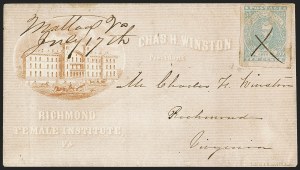 Mattoax Va
July 17th
CHAS H. WINSTON
Mr. Charles H. Winston
Richmond
Virginia
RICHMOND
FEMALE INSTITUTE
VA